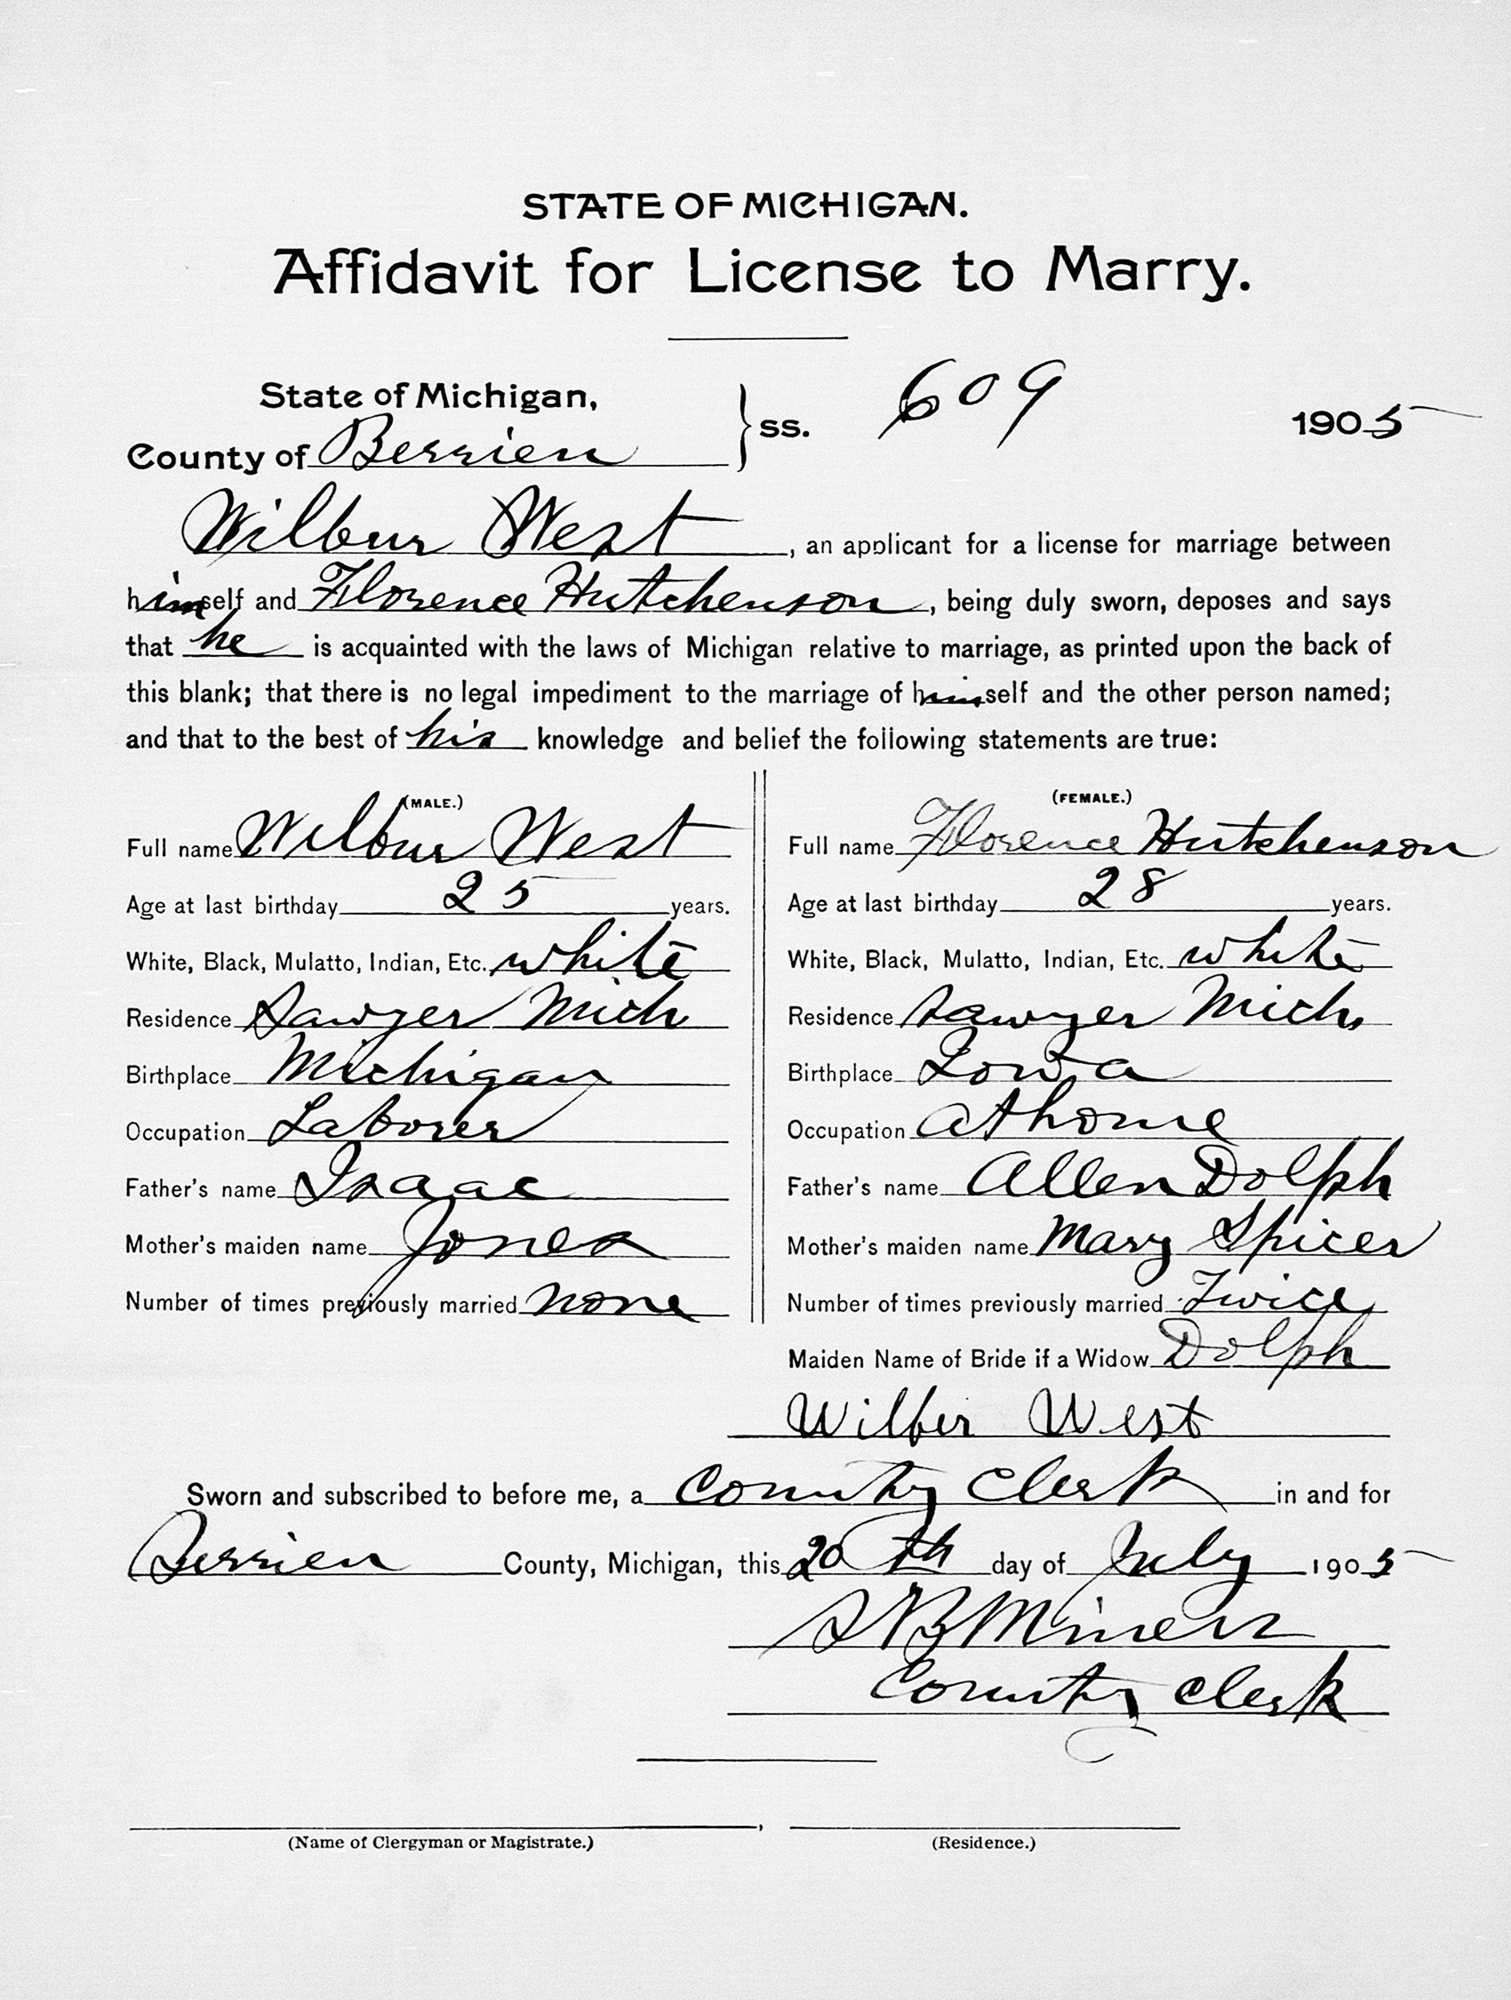 STATE OF MICHIGAN.
Affidavit for License to Marry.
State of Michigan,
County of Berrien } ss. 609 1905
Wilbur West, an applicant for a license for marriage between
himself and Florence Hutchenson, being duly sworn, deposes and says
that he is acquainted with the laws of Michigan relative to marriage, as printed upon the back of
this blank; that there is no legal impediment to the marriage of himself and the other person named;
and that to the best of his knowledge and belief the following statements are true:
(MALE.)
Full name Wilbur West
Age at last birthday 25 years.
White, Black, Mulatto, Indian, Etc. white
Residence Sawyer Mich
Birthplace Michigan
Occupation Laborer
Father's name Isaac
Mother's maiden name Jones
Number of times previously married none
(FEMALE.)
Full name Florence Hutchenson
Age at last birthday 28 years.
White, Black, Mulatto, Indian, Etc. white
Residence Sawyer Mich.
Birthplace Iowa
Occupation at home
Father's name Allen Dolph
Mother's maiden name Mary Spicer
Number of times previously married Twice
Maiden Name of Bride if a Widow Dolph
Wilber West
Sworn and subscribed to before me, a County Clerk in and for
Berrien County, Michigan, this 20th day of July 1905
Miners
County Clerk
(Name of Clergyman or Magistrate.) , (Residence.)